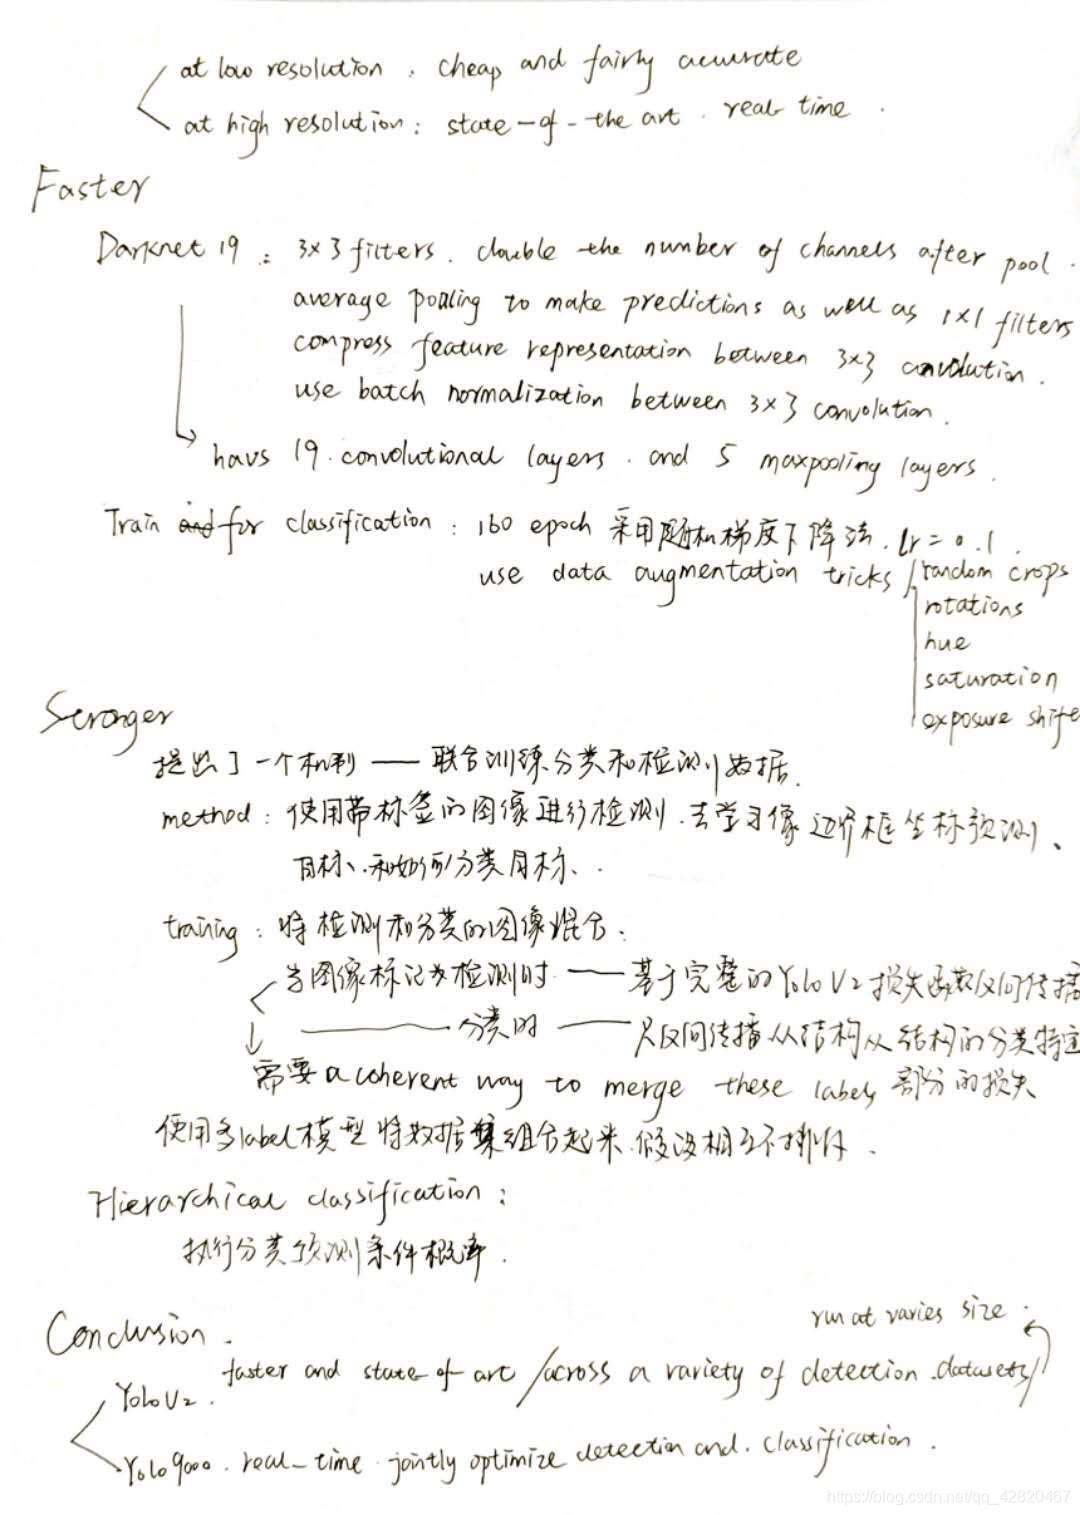 at low resolution, cheap and fairly accurate
at high resolution: state-of-the art. real time.
Faster
Darknet 19: 3×3 filters. double the number of channels after pool.
average pooling to make predictions as well as 1×1 filters
compress feature representation between 3×3 convolution.
use batch normalization between 3×3 convolution.
havs 19. convolutional layers. and 5 maxpooling layers.
Train for classification: 160 epoch 采用随机梯度下降法. Lr = 0.1.
use data augmentation tricks random crops
rotations
hue
saturation
exposure shift
Stronger
提出了一个机制——联合训练分类和检测数据.
method: 使用带标签的图像进行检测.去学习像边界框坐标预测、
目标、和如何分类目标.
training: 将检测和分类的图像混合.
当图像标记为检测时——基于完整的YoloV2损失函数反向传播
分类时——只反向传播从结构从结构的分类特定
需要a coherent way to merge these labels 部分的损失
使用多label模型将数据集组合起来.假设相互不排斥.
Hierarchical classification:
执行分类预测条件概率.
Conclusion.
run at varies size.
faster and state-of-art /across a variety of detection datasets/
YoloV2.
Yolo9000. real-time. jointly optimize detection and. classification.
https://blog.csdn.net/qq_42820467